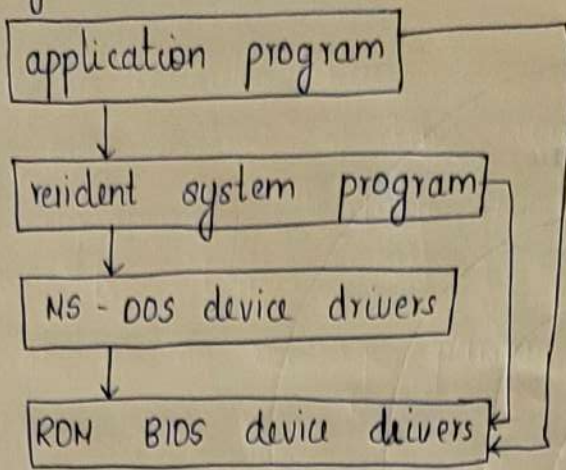 application program
resident system program
MS-DOS device drivers
ROM BIOS device drivers